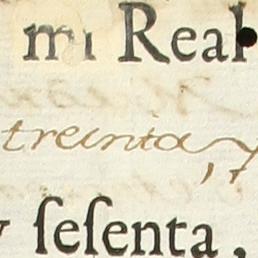 mi Real
treinta, y
y ſeſenta,